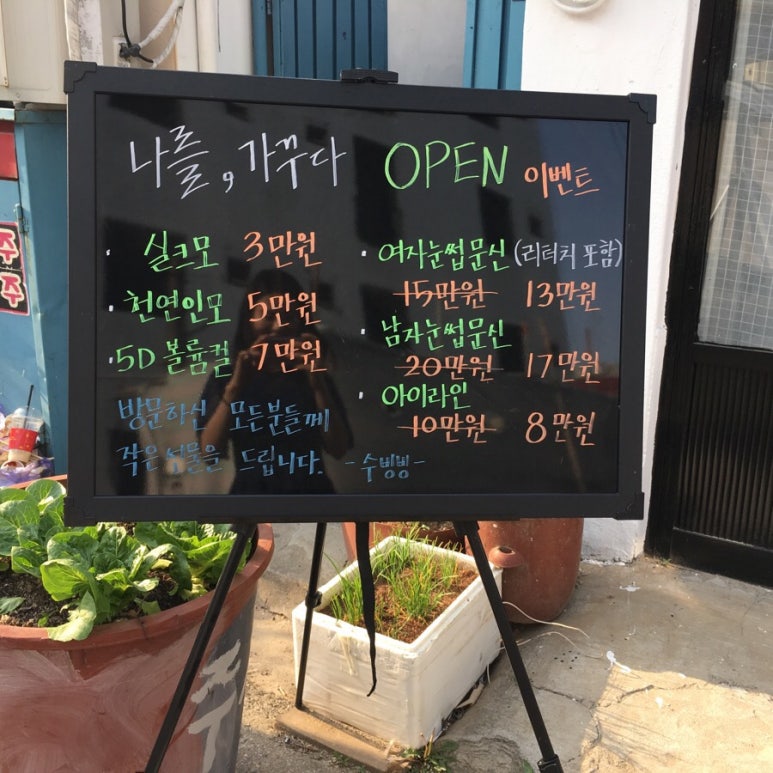 나를, 가꾸다 OPEN 이벤트
· 실크모 3만원
· 천연인모 5만원
· 5D 볼륨컬 7만원
방문하신 모든분들께
작은선물을 드립니다. -수빙빙-
· 여자눈썹문신 (리터치 포함)
15만원 13만원
· 남자눈썹문신
20만원 17만원
· 아이라인
10만원 8만원
주
주